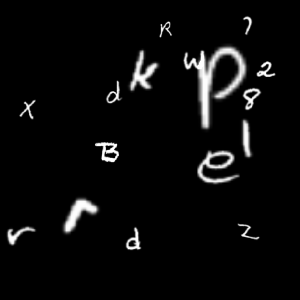 R ?
k w p 2
x d 8
B e l
r r d z